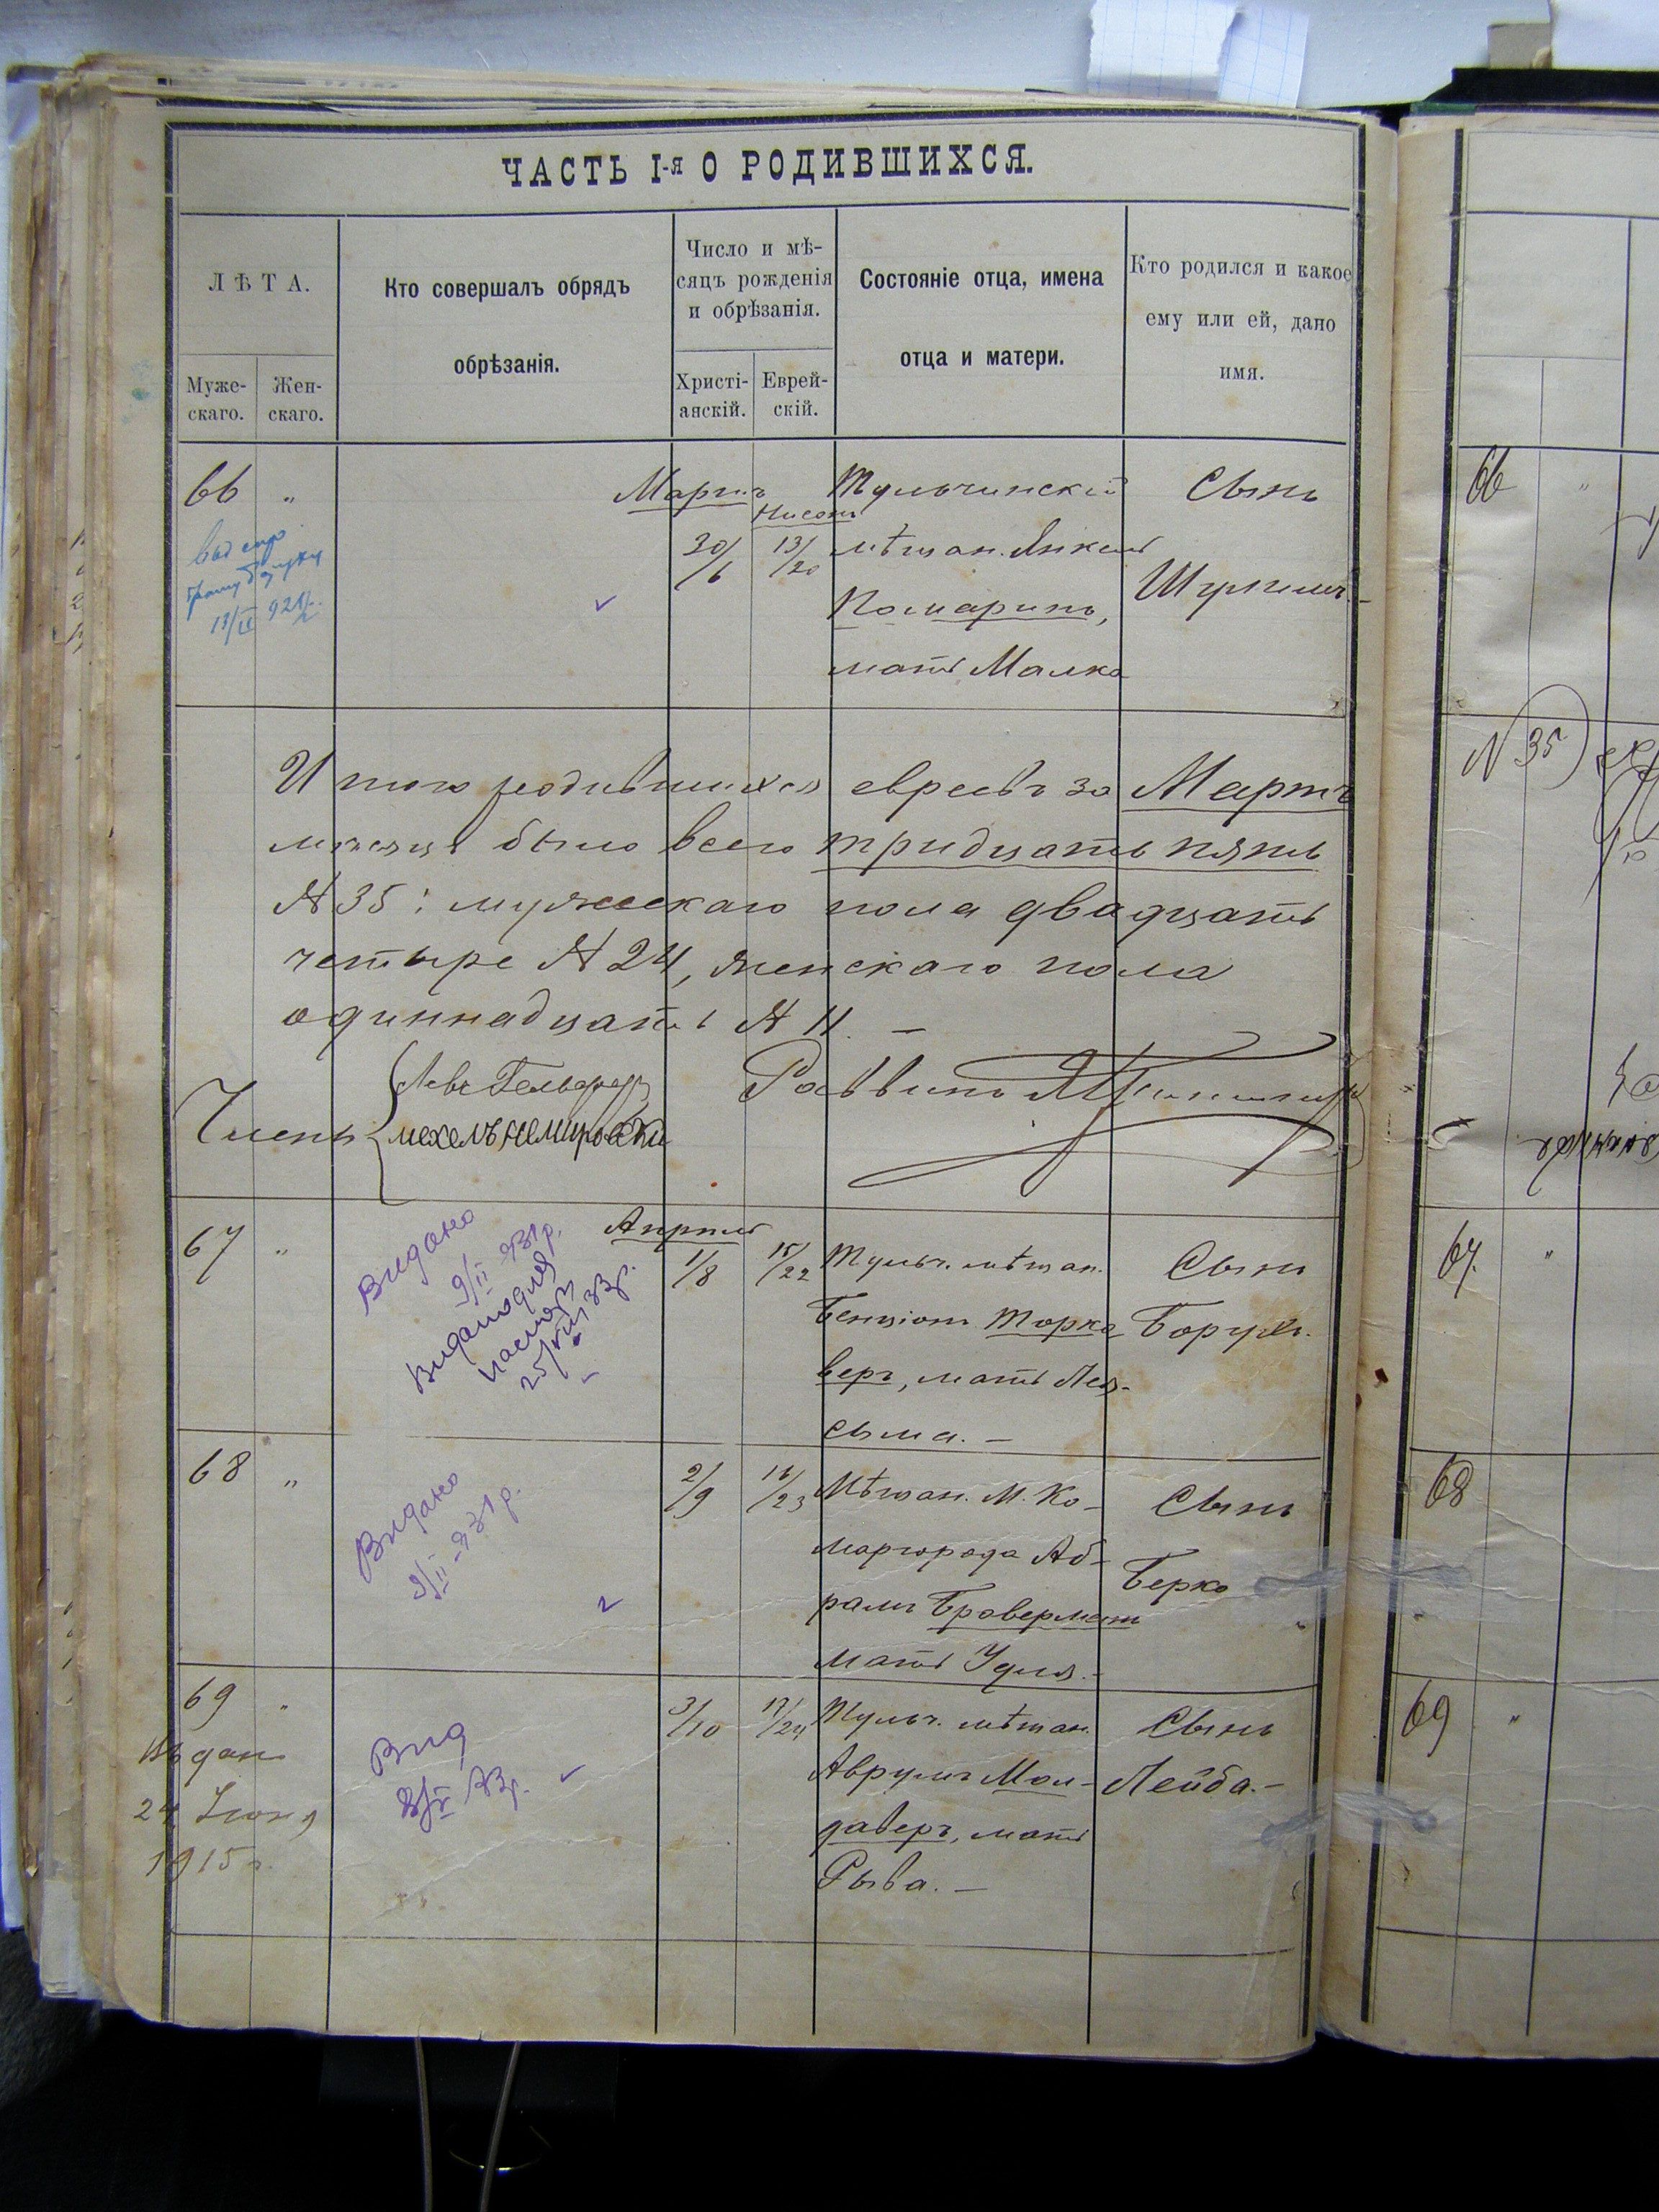 ЧАСТЬ I-я О РОДИВШИХСЯ.
ЛѢТА.
Муже-
скаго.
Жен-
скаго.
Кто совершалъ обрядъ
обрѣзанія.
Число и мѣ-
сяцъ рожденія
и обрѣзанія.
Христі-
анскій.
Еврей-
скій.
Состояніе отца, имена
отца и матери.
Кто родился и какое
ему или ей, дано
имя.
66 "
13/IX 921 г.
Мартъ
Нисонъ
30/6 13/20
Тульчинскій
мѣщан. Янкель
Комаринъ,
мать Малка
Сынъ
Шулимъ. -
Итого родившихся евреевъ за Мартъ
мѣсяцъ было всего тридцать пять
№ 35: мужескаго пола двадцать
четыре № 24, женскаго пола
одиннадцать № 11. -
Члены
Левъ
мехелъ немировски
Раввинъ
67 "
Видано
9/II 931 р.
Видано для
паспорт
25/VII 33 р.
Апрѣль
1/8 15/22
Тульч. мѣщан.
Бенціонъ Торко
веръ, мать Лея-
сыма. -
Сынъ
Борухъ.
68 "
Видано
9/II - 931 р.
2/9 16/23
Мѣщан. м. Ко-
маргорода Аб-
рамъ Браверманъ
мать Удля. -
Сынъ
Берко
69 "
Выдан
24 Іюня
1915 г.
Вид
3/10 17/24
Тульч. мѣщан.
Аврумъ Мол-
даверъ, мать
Рыва. -
Сынъ
Лейба. -
66 "
N 35
67. "
68
69 "